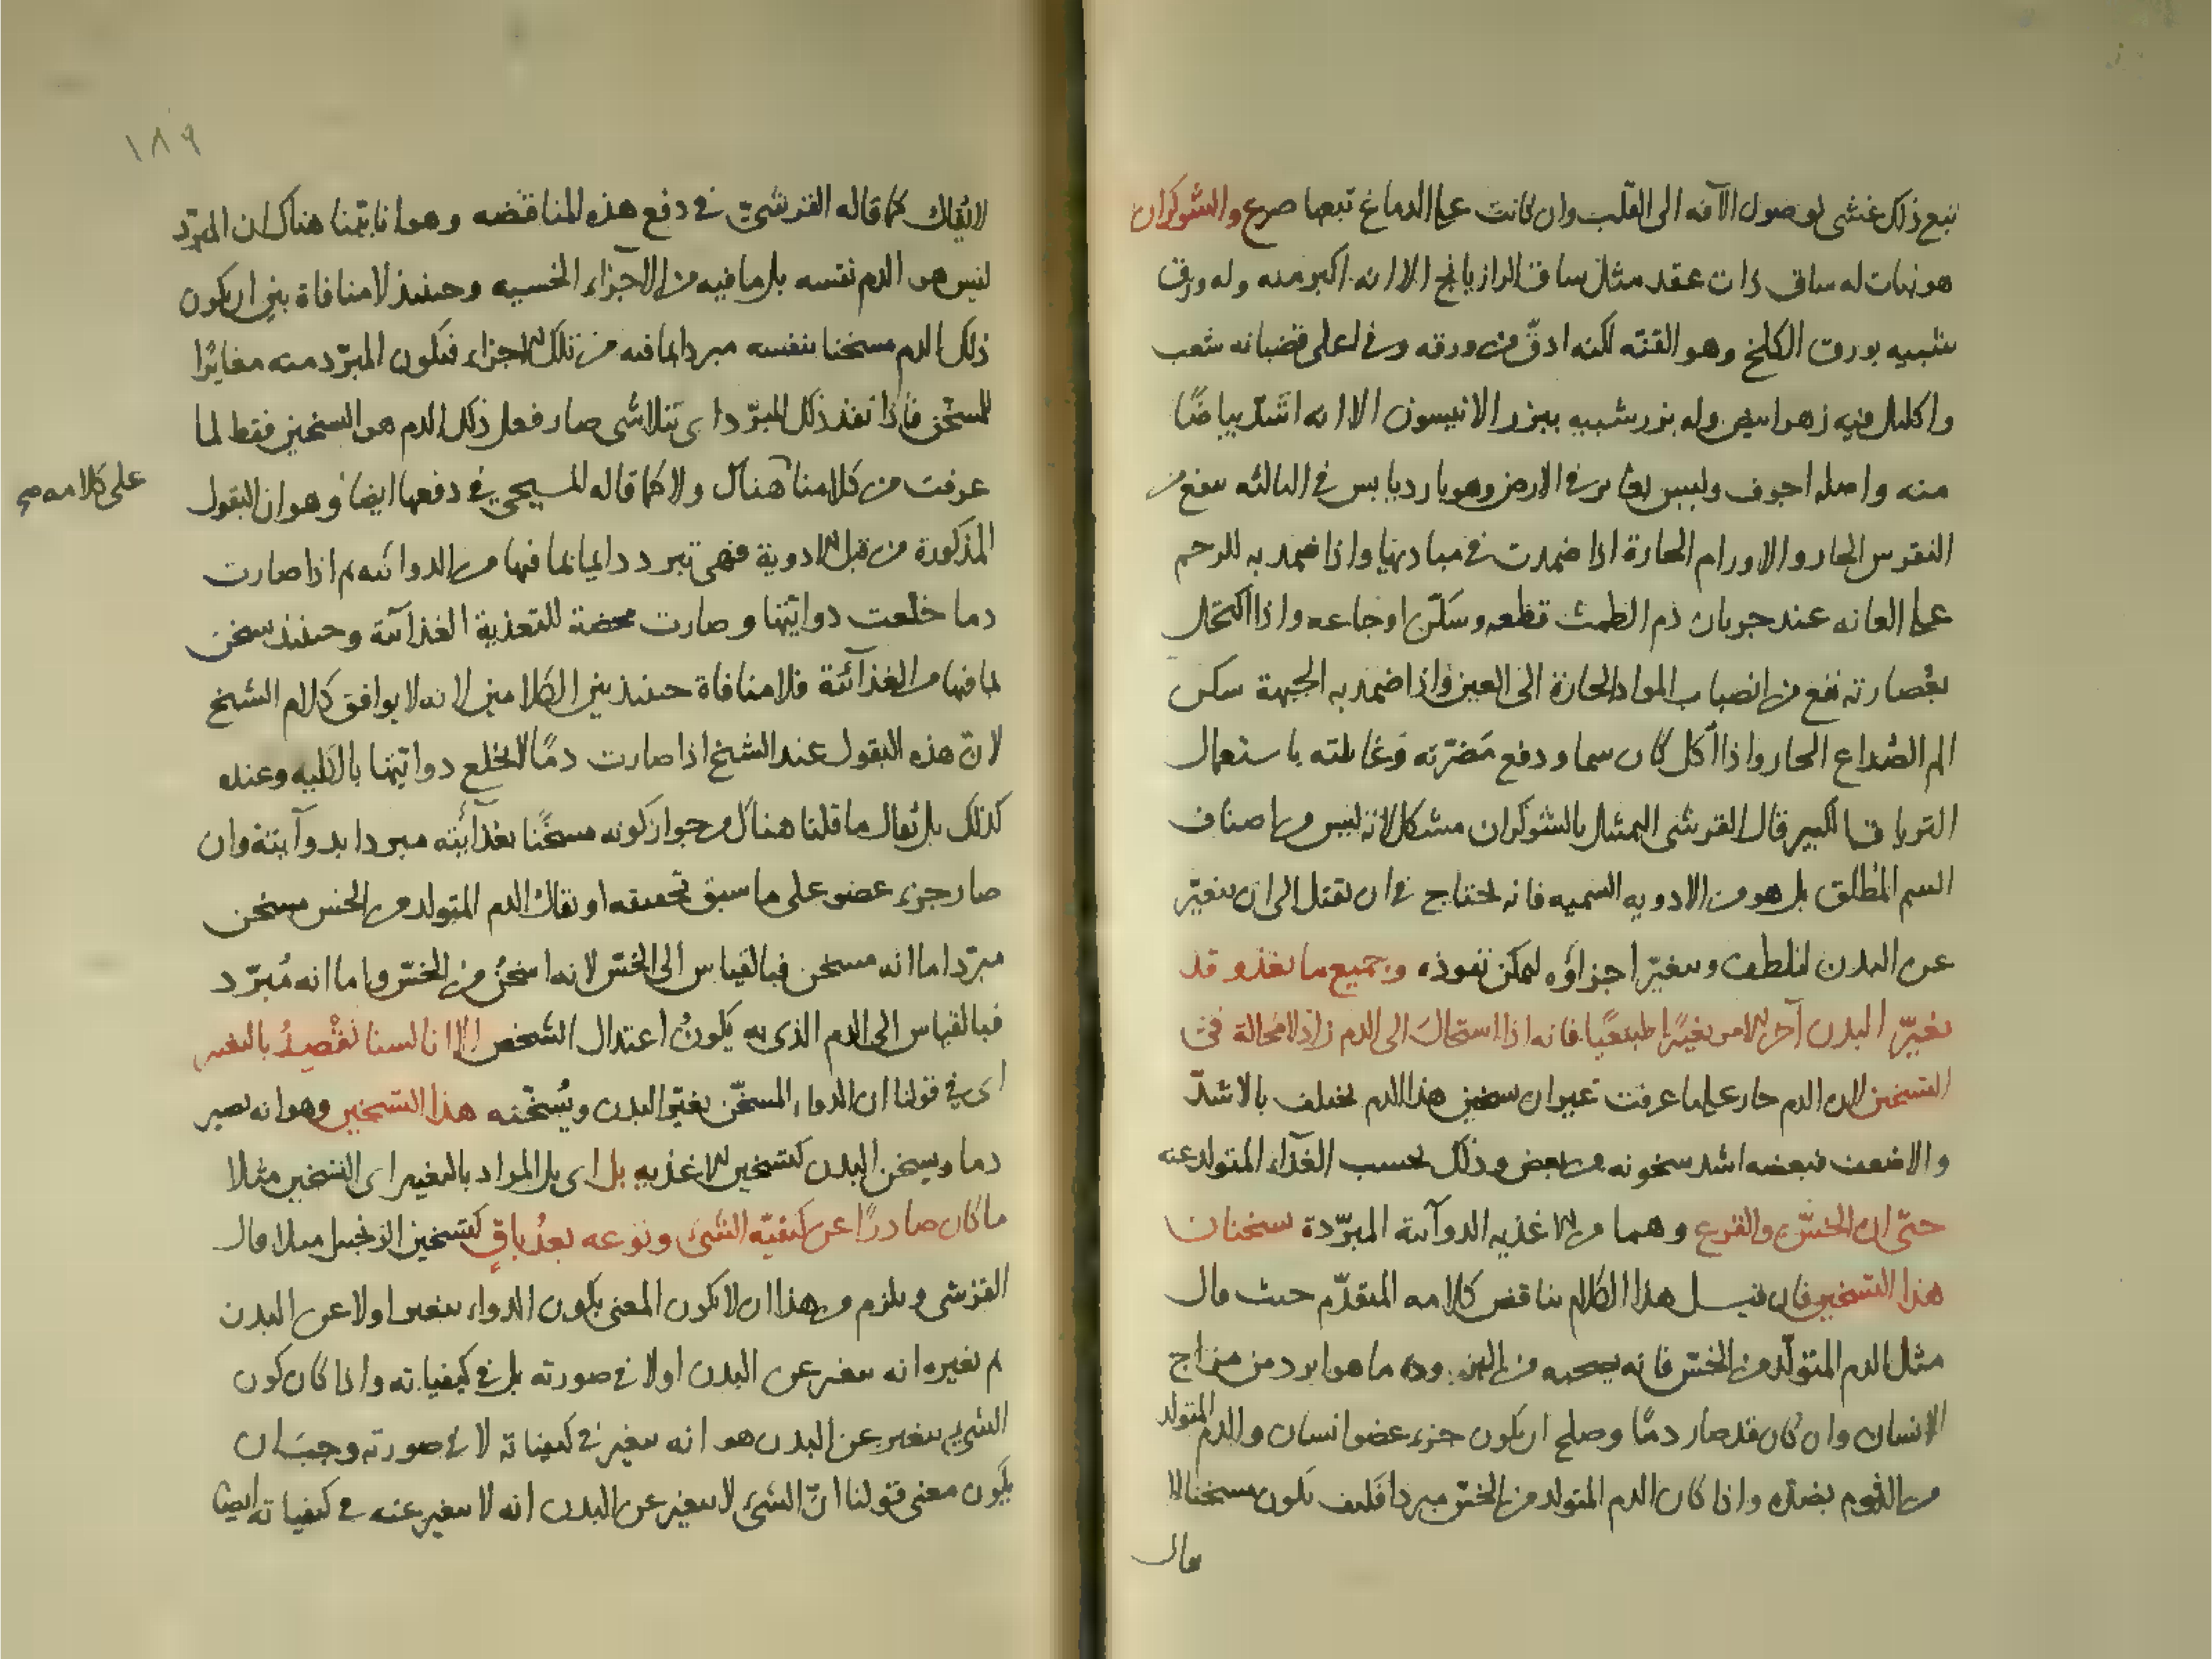 تتبع ذلك غشى لوصول الآفه الى القلب وان كانت على الدماغ تبعها صرع والشوكران
هو نبات له ساق ذات عقد مثل ساق الرازيانج الا انه اكبر منه وله ورق
شبيه بورق الكلخ وهو القنه لكنه ادق من ورقه وفى اعلى قضبانه شعب
واكليل فيه زهر ابيض وله بزر شبيه ببزر الانيسون الا انه اشد بياضا
منه واصله اجوف وليس بغائر فى الارض وهو بارد يابس فى الثالثه ينفع من
النقرس الحار والاورام الحارة اذا ضمدت فى مباديها واذا ضمد به للرحم
على العانه عند جريان دم الطمث قطعه وسكن اوجاعه واذا اكتحل
بعصارته نفع من انصباب المواد الحارة الى العين واذا ضمد به الجبهة سكن
الم الصداع الحار واذا أكل كان سما ودفع مضرته وغائلته باستعمال
الترياق الكبير قال القرشى التمثيل بالشوكران مشكل لانه ليس من اصناف
السم المطلق بل هو من الادويه السميه فانه يحتاج فى ان يقتل الى ان يتغير
عن البدن لتلطف وتتغير اجزاؤه ليمكن نفوذه وجميع ما يغذو قد
يغير البدن آخر الامر تغيرا طبيعيا فانه اذا استحال الى الدم زاد لا محالة فى
التسخين لان الدم حار على ما عرفت غير ان تسخين هذا الدم يختلف بالاشد
والاضعف فبعضه اشد سخونه من بعض وذلك بحسب الغذاء المتولد عنه
حتى ان الخس والقرع وهما من الاغذيه الدوآئية المبردة يسخنان
هذا التسخين فان قيل هذا الكلام يناقض كلامه المتقدم حيث قال
مثل الدم المتولد من الخس فانه يصحبه من البرد ما هو ابرد من مزاج
الانسان وان كان قد صار دما وصلح ان يكون جزء عضو انسان والدم المتولد
من الثوم بضده واذا كان الدم المتولد من الخس مبردا فكيف يكون مسخنا لا
يقال
١٨٩
لا يقال كما قاله القرشى فى دفع هذه المناقضه وهو انا بينا هناك ان المبرد
ليس هو الدم نفسه بل ما فيه من الاجزاء الخسيه وحينئذ لا منافاة بين ان يكون
ذلك الدم مسخنا بنفسه مبردا بما فيه من تلك الاجزاء فيكون المبرد منه مغايرا
للمسخن فاذا نفذ ذلك المبرد اى تلاشى صار فعل ذلك الدم هو التسخين فقط لما
عرفت من كلامنا هناك ولا كما قاله المسيحى فى دفعها ايضا وهو ان البقول
على كلامه صح
المذكورة من قبل الادوية فهى تبرد دايما بما فيها من الدوائيه ثم اذا صارت
دما خلعت دوائيتها وصارت محضة للتغذية الغذائية وحينئذ تسخن
بما فيها من الغذآئية فلا منافاة حينئذ بين الكلامين لانه لا يوافق كلام الشيخ
لان هذه البقول عند الشيخ اذا صارت دما لا تخلع دوائيتها بالكليه وعنده
كذلك بل يقال ما قلنا هناك من جواز كونه مسخنا بغذآئيته مبردا بدوآئيته وان
صار جزء عضو على ما سبق تحقيقه او يقال الدم المتولد من الخس مسخن
مبرد اما انه مسخن فبالقياس الى الخس لانه اسخن من الخس واما انه مبرد
فبالقياس الى الدم الذى به يكون اعتدال الشخص الا انا لسنا نقصد بالتغيير
اى فى قولنا ان الدواء المسخن يغير البدن ويسخنه هذا التسخين وهو انه يصير
دما ويسخن البدن كتسخين الاغذيه بل اى بل المراد بالتغيير اى التسخين مثلا
ما كان صادرا عن كيفية الشئ ونوعه بعد باق كتسخين الزنجبيل مثلا قال
القرشى ويلزم من هذا ان لا يكون المعنى بكون الدواء يتغير اولا عن البدن
ثم يغيره انه يتغير عن البدن اولا فى صورته بل فى كيفياته واذا كان كون
الشئ يتغير عن البدن هو انه يتغير فى كيفياته لا فى صورته وجب ان
يكون معنى قولنا ان الشئ لا يتغير عن البدن انه لا يتغير عنه فى كيفياته ايضا